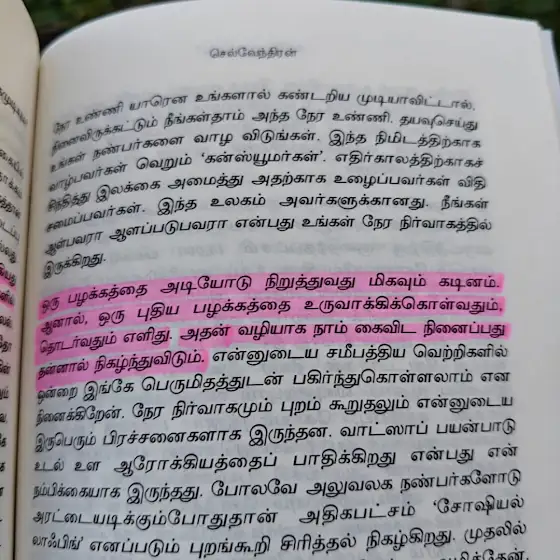 செல்வேந்திரன்
நேர உண்ணி யாரென உங்களால் கண்டறிய முடியாவிட்டால்,
நினைவிருக்கட்டும் நீங்கள்தாம் அந்த நேர உண்ணி. தயவுசெய்து
உங்கள் நண்பர்களை வாழ விடுங்கள். இந்த நிமிடத்திற்காக
வாழ்பவர்கள் வெறும் ‘கன்ஸ்யூமர்கள்’. எதிர்காலத்திற்காகச்
சிந்தித்து இலக்கை அமைத்து அதற்காக உழைப்பவர்கள் விதி
சமைப்பவர்கள். இந்த உலகம் அவர்களுக்கானது. நீங்கள்
ஆள்பவரா ஆளப்படுபவரா என்பது உங்கள் நேர நிர்வாகத்தில்
இருக்கிறது.
ஒரு பழக்கத்தை அடியோடு நிறுத்துவது மிகவும் கடினம்.
ஆனால், ஒரு புதிய பழக்கத்தை உருவாக்கிக்கொள்வதும்,
தொடர்வதும் எளிது. அதன் வழியாக நாம் கைவிட நினைப்பது
தன்னால் நிகழ்ந்துவிடும். என்னுடைய சமீபத்திய வெற்றிகளில்
ஒன்றை இங்கே பெருமிதத்துடன் பகிர்ந்துகொள்ளலாம் என
நினைக்கிறேன். நேர நிர்வாகமும் புறம் கூறுதலும் என்னுடைய
இருபெரும் பிரச்சனைகளாக இருந்தன. வாட்ஸாப் பயன்பாடு
உடல் உள ஆரோக்கியத்தைப் பாதிக்கிறது என்பது என்
நம்பிக்கையாக இருந்தது. போலவே அலுவலக நண்பர்களோடு
அரட்டையடிக்கும்போதுதான் அதிகபட்சம் ‘சோஷியல்
லாஃபிங்’ எனப்படும் புறங்கூறி சிரித்தல் நிகழ்கிறது. முதலில்